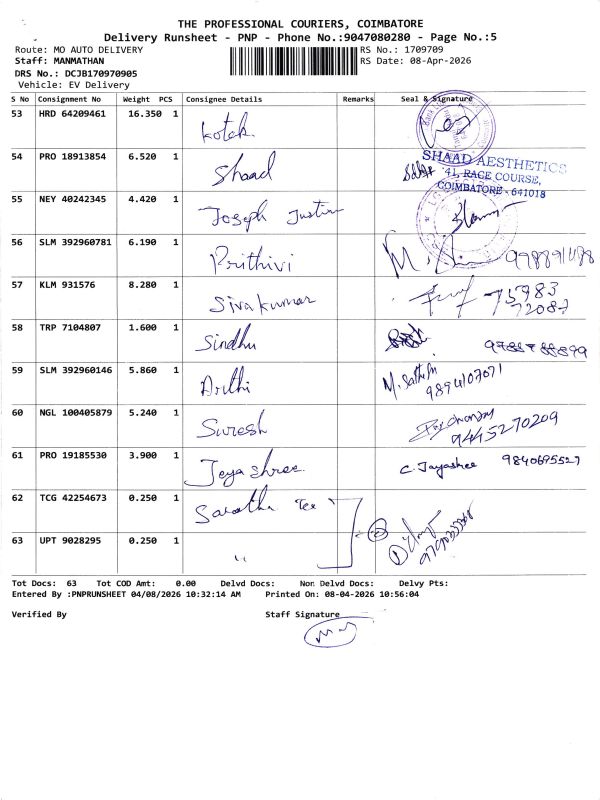 THE PROFESSIONAL COURIERS, COIMBATORE
Delivery Runsheet - PNP - Phone No.:9047080280 - Page No.:5
Route: MO AUTO DELIVERY
RS No.: 1709709
Staff: MANMATHAN
RS Date: 08-Apr-2026
DRS No.: DCJB170970905
Vehicle: EV Delivery
S No Consignment No Weight PCS Consignee Details Remarks Seal & Signature
53 HRD 64209461 16.350 1 Kotak
54 PRO 18913854 6.520 1 Shaad
SHAAD AESTHETICS
41, RACE COURSE,
COIMBATORE - 641018
55 NEY 40242345 4.420 1 Joseph Justin
56 SLM 392960781 6.190 1 Prithivi
57 KLM 931576 8.280 1 Sivakumar 75983
72087
58 TRP 7104807 1.600 1 Sindhu
59 SLM 392960146 5.860 1 Arthi
9894107071
60 NGL 100405879 5.240 1 Suresh
9445270209
61 PRO 19185530 3.900 1 Jeyashree C. Jayashee 9840695527
62 TCG 42254673 0.250 1 Saratha Tex
63 UPT 9028295 0.250 1 "
Tot Docs: 63 Tot COD Amt: 0.00 Delvd Docs: Non Delvd Docs: Delvy Pts:
Entered By :PNPRUNSHEET 04/08/2026 10:32:14 AM Printed On: 08-04-2026 10:56:04
Verified By Staff Signature